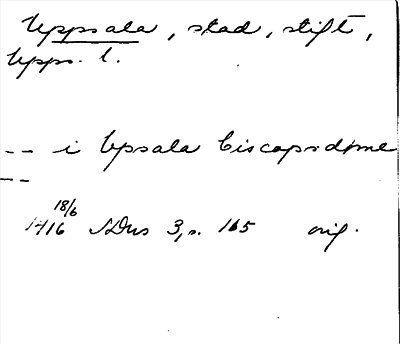 Uppsala, stad, stift,
Upps. l.
-- i Upsala biscopsdøme
--
18/6
1416 SDns 3, s. 165 orig.